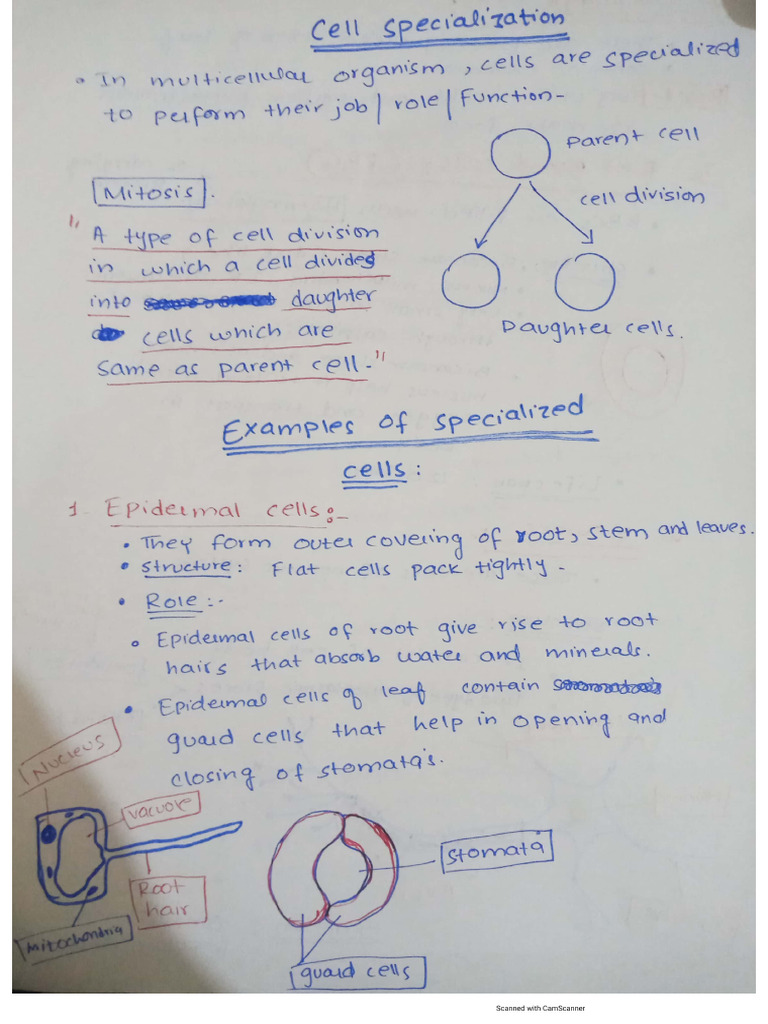 Cell specialization
• In multicellular organism, cells are specialized
to perform their job/ role/ Function-
Parent cell
cell division
Daughter cells.
Mitosis.
"A type of cell division
in which a cell divides
into daughter
cells which are
same as parent cell-"
Examples of specialized
cells:
1. Epidermal cells:-
• They form outer covering of root, stem and leaves.
• Structure: Flat cells pack tightly-
• Role:-
• Epidermal cells of root give rise to root
hairs that absorb water and minerals.
• Epidermal cells of leaf contain
guard cells that help in opening and
closing of stomata's.
Nucleus
vacuole
Root
hair
Mitochondria
stomata
guard cells
Scanned with CamScanner